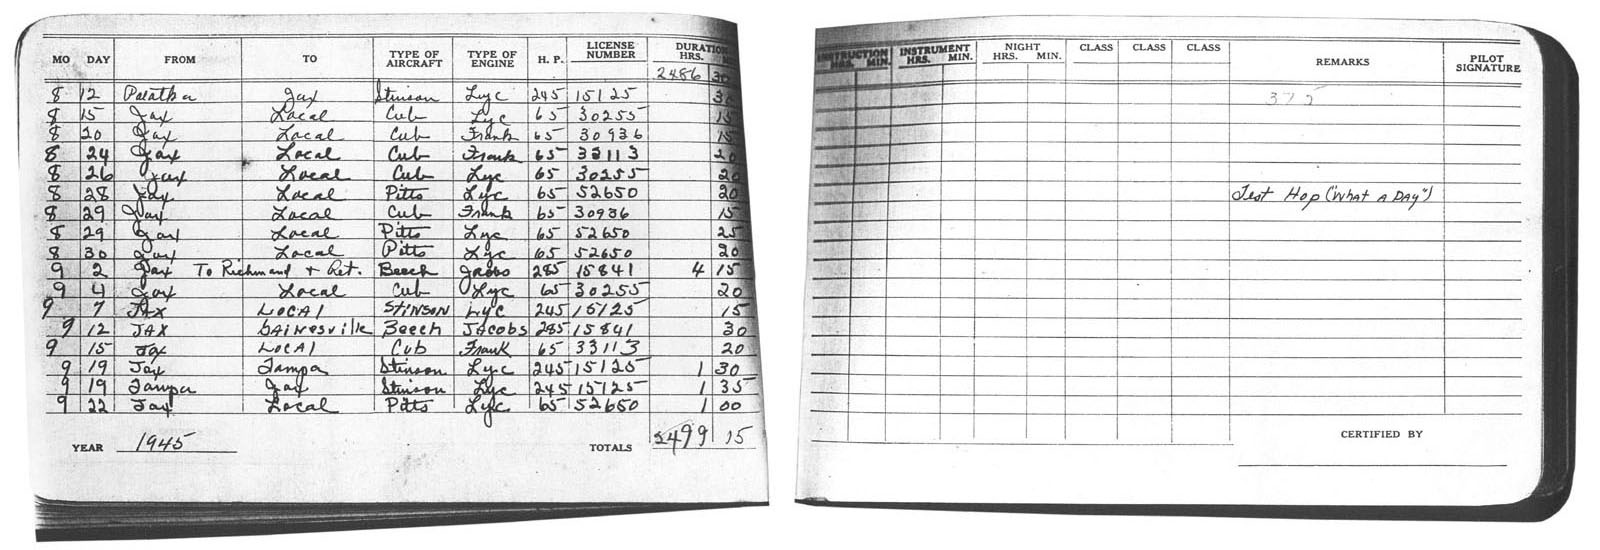 MO DAY FROM TO TYPE OF AIRCRAFT TYPE OF ENGINE H. P. LICENSE NUMBER DURATION HRS.
2486 30
8 12 Palatka Jax Stinson Lyc 245 15125 30
8 15 Jax Local Cub Lyc 65 30255 15
8 20 Jax Local Cub Frank 65 30936 15
8 24 Jax Local Cub Frank 65 33113 20
8 26 Jax Local Cub Lyc 65 30255 20
8 28 Jax Local Pitts Lyc 65 52650 20
8 29 Jax Local Cub Frank 65 30936 15
8 29 Jax Local Pitts Lyc 65 52650 25
8 30 Jax Local Pitts Lyc 65 52650 20
9 2 Jax To Richmond + Ret. Beech Jacobs 285 15841 4 15
9 4 Jax Local Cub Lyc 65 30255 20
9 7 JAX LOCAl STiNSON Lyc 245 15125 15
9 12 JAX GAiNesville Beech JAcobs 285 15841 30
9 15 Jax LOCAl Cub Frank 65 33113 20
9 19 Jax Tampa Stinson Lyc 245 15125 1 30
9 19 Tampa Jax Stinson Lyc 245 15125 1 35
9 22 Jax Local Pitts Lyc 65 52650 1 00
YEAR 1945 TOTALS 2499 15
INSTRUCTION HRS. MIN. INSTRUMENT HRS. MIN. NIGHT HRS. MIN. CLASS CLASS CLASS REMARKS PILOT SIGNATURE
375
Test Hop ("WHAT A DAY")
CERTIFIED BY